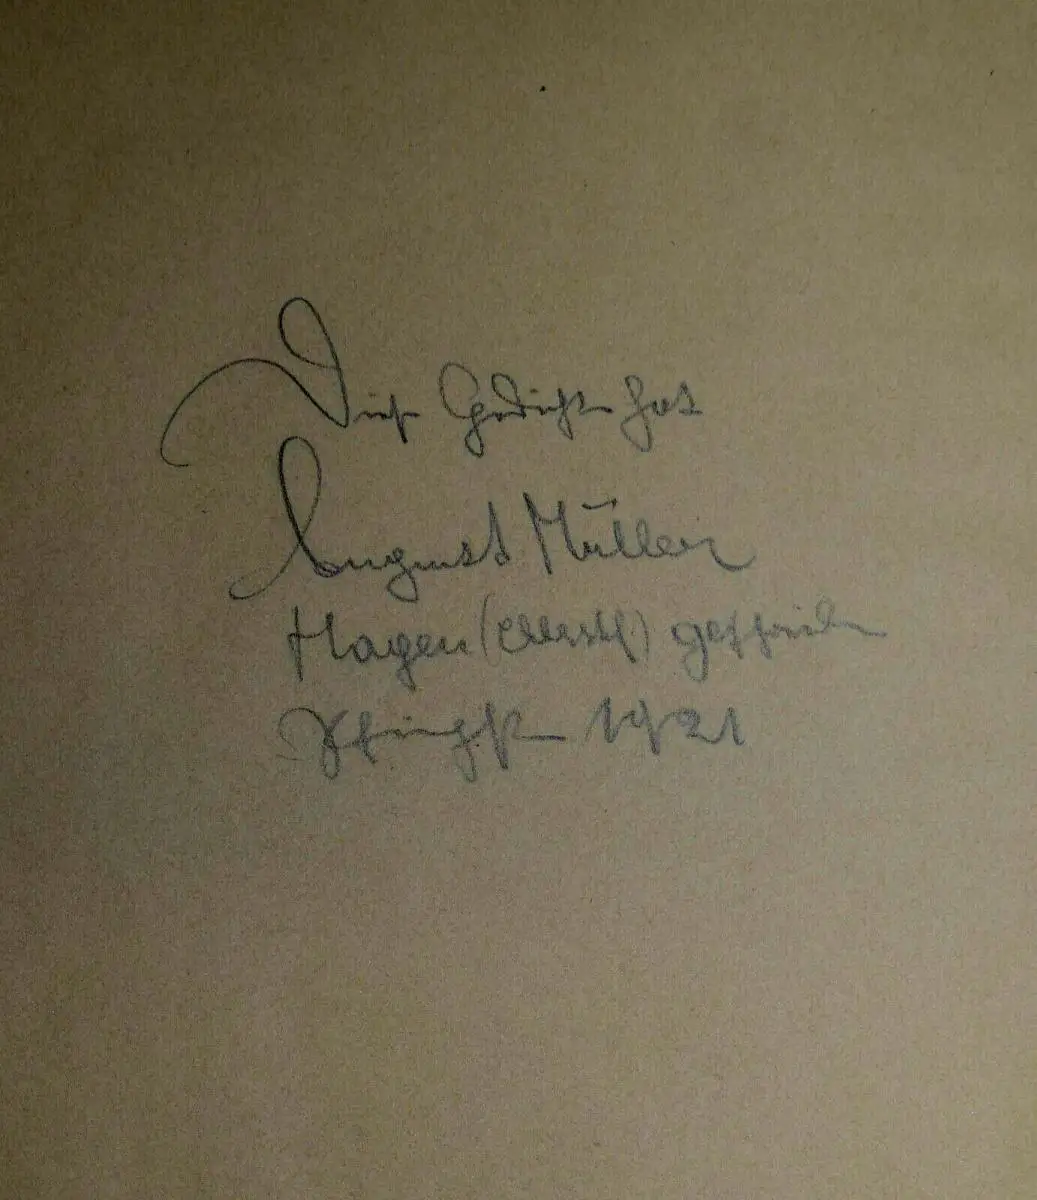 Diese Gedichte hat
August Müller
Hagen (Westf.) geschrieben
Pfingsten 1921